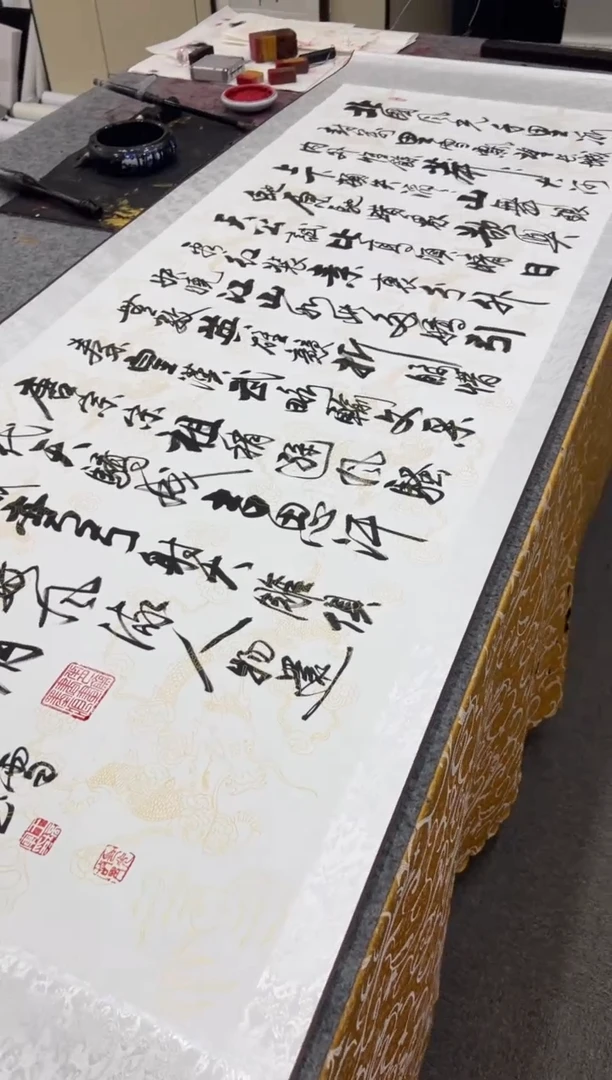 北国风光千里冰
封万里雪飘望长城
内外惟余莽莽大河
上下顿失滔滔山舞银
蛇原驰蜡象欲与
天公试比高须晴日
看红装素裹分外
妖娆江山如此多娇引
无数英雄竞折腰惜
秦皇汉武略输文采
唐宗宋祖稍逊风骚
代天骄成吉思汗
弯弓射大雕俱
数风流人物还
朝
雪